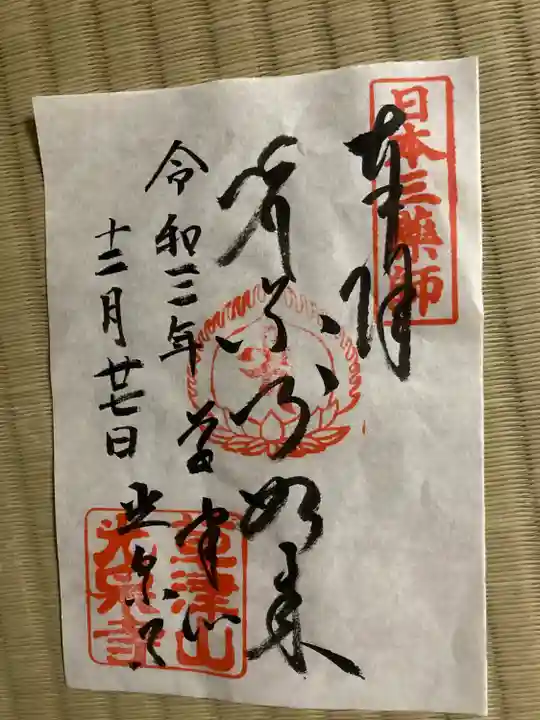 日本三藥師
奉拝
如来
令和三年 草津山
十二月廿七日 光泉寺
草津山
光泉寺